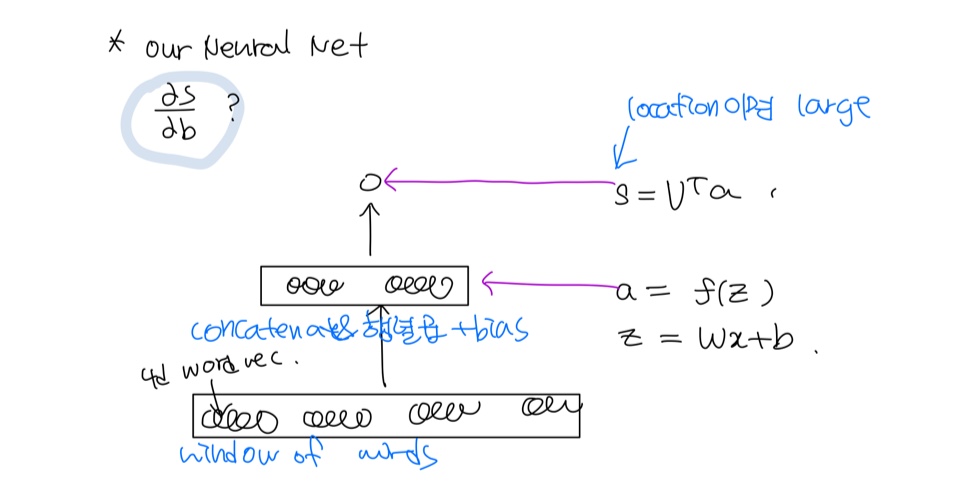 * our Neural Net
∂s/∂b ?
location이면 large
s = Uᵀa
a = f(z)
concatenate & 행렬곱 + bias
z = Wx+b .
4d word vec.
window of words